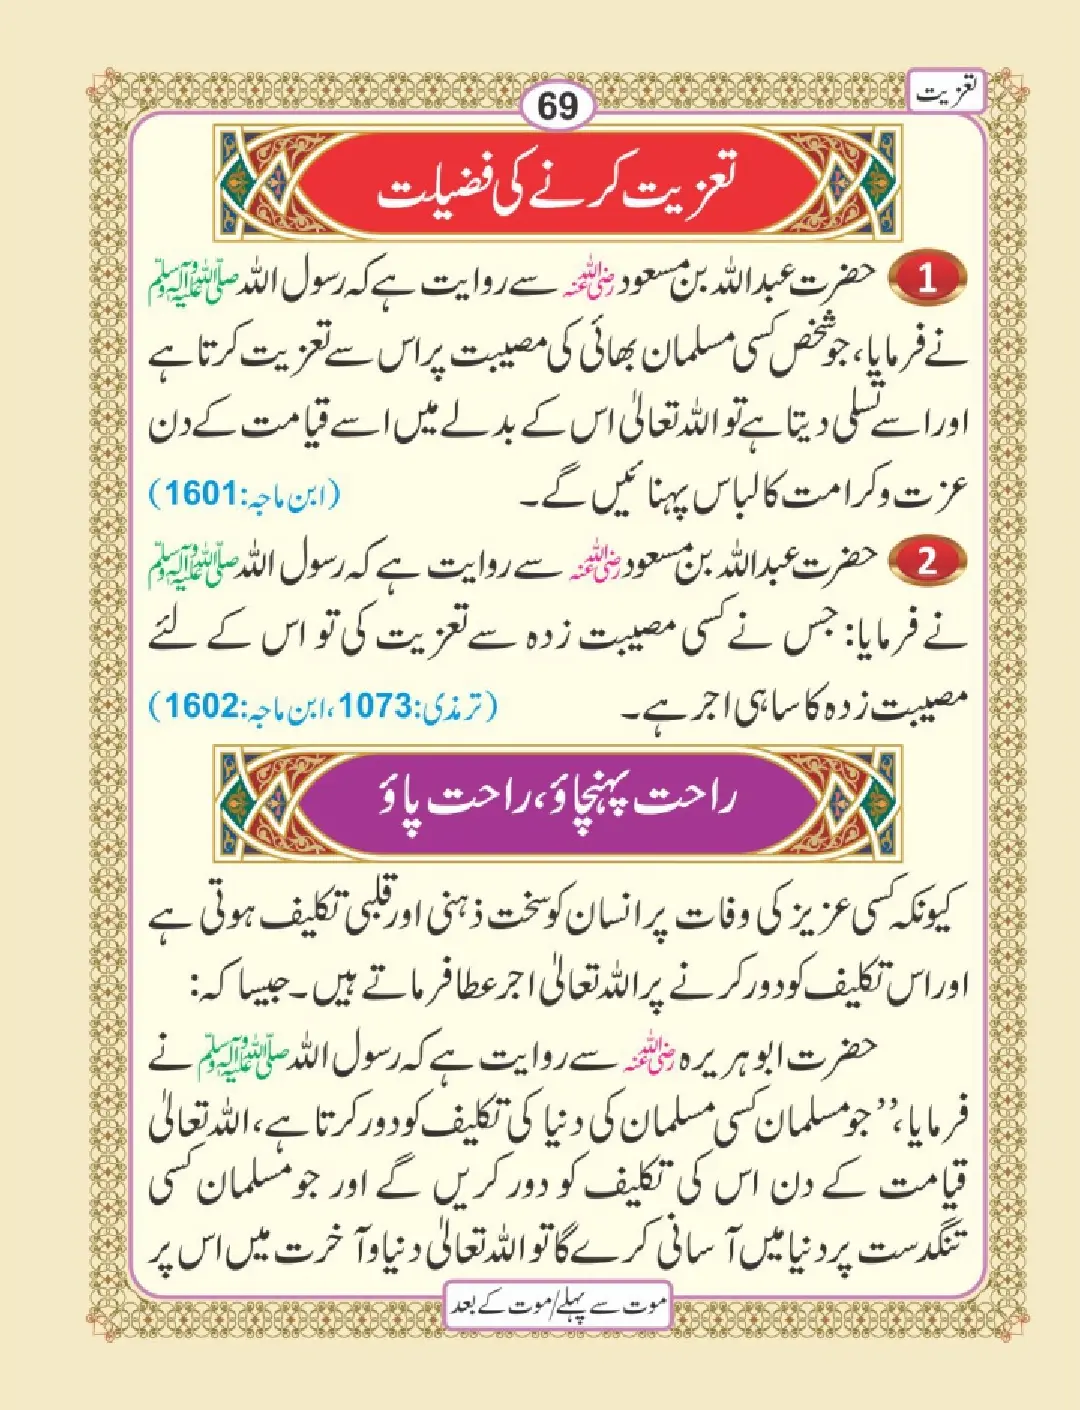 تعزیت
69
تعزیت کرنے کی فضیلت
1 حضرت عبداللہ بن مسعود رضی اللہ عنہ سے روایت ہے کہ رسول اللہ صلی اللہ علیہ وآلہ وسلم
نے فرمایا، جو شخص کسی مسلمان بھائی کی مصیبت پر اس سے تعزیت کرتا ہے
اور اسے تسلی دیتا ہے تو اللہ تعالیٰ اس کے بدلے میں اسے قیامت کے دن
عزت و کرامت کا لباس پہنائیں گے۔ (ابن ماجہ:1601)
2 حضرت عبداللہ بن مسعود رضی اللہ عنہ سے روایت ہے کہ رسول اللہ صلی اللہ علیہ وآلہ وسلم
نے فرمایا: جس نے کسی مصیبت زدہ سے تعزیت کی تو اس کے لئے
مصیبت زدہ کا سا ہی اجر ہے۔ (ترمذی:1073، ابن ماجہ:1602)
راحت پہنچاؤ، راحت پاؤ
کیونکہ کسی عزیز کی وفات پر انسان کو سخت ذہنی اور قلبی تکلیف ہوتی ہے
اور اس تکلیف کو دور کرنے پر اللہ تعالیٰ اجر عطا فرماتے ہیں۔ جیسا کہ:
حضرت ابو ہریرہ رضی اللہ عنہ سے روایت ہے کہ رسول اللہ صلی اللہ علیہ وآلہ وسلم نے
فرمایا، ’’جو مسلمان کسی مسلمان کی دنیا کی تکلیف کو دور کرتا ہے، اللہ تعالیٰ
قیامت کے دن اس کی تکلیف کو دور کریں گے اور جو مسلمان کسی
تنگدست پر دنیا میں آسانی کرے گا تو اللہ تعالیٰ دنیا و آخرت میں اس پر
موت سے پہلے/موت کے بعد